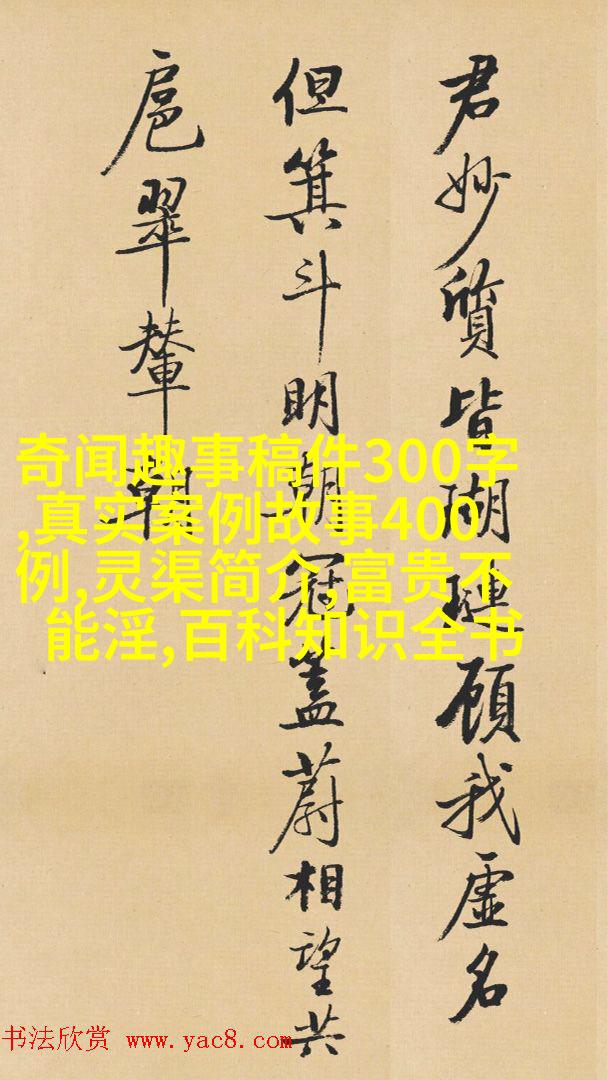 君妙質皆瑚璉顧我虛名
但箕斗明朝冠蓋蔚相望共
扈翠輦朝
奇闻趣事稿件300字
,真实案例故事400
例,灵渠简介,富贵不
能淫,百科知识全书
书法欣赏 www.yac8.com